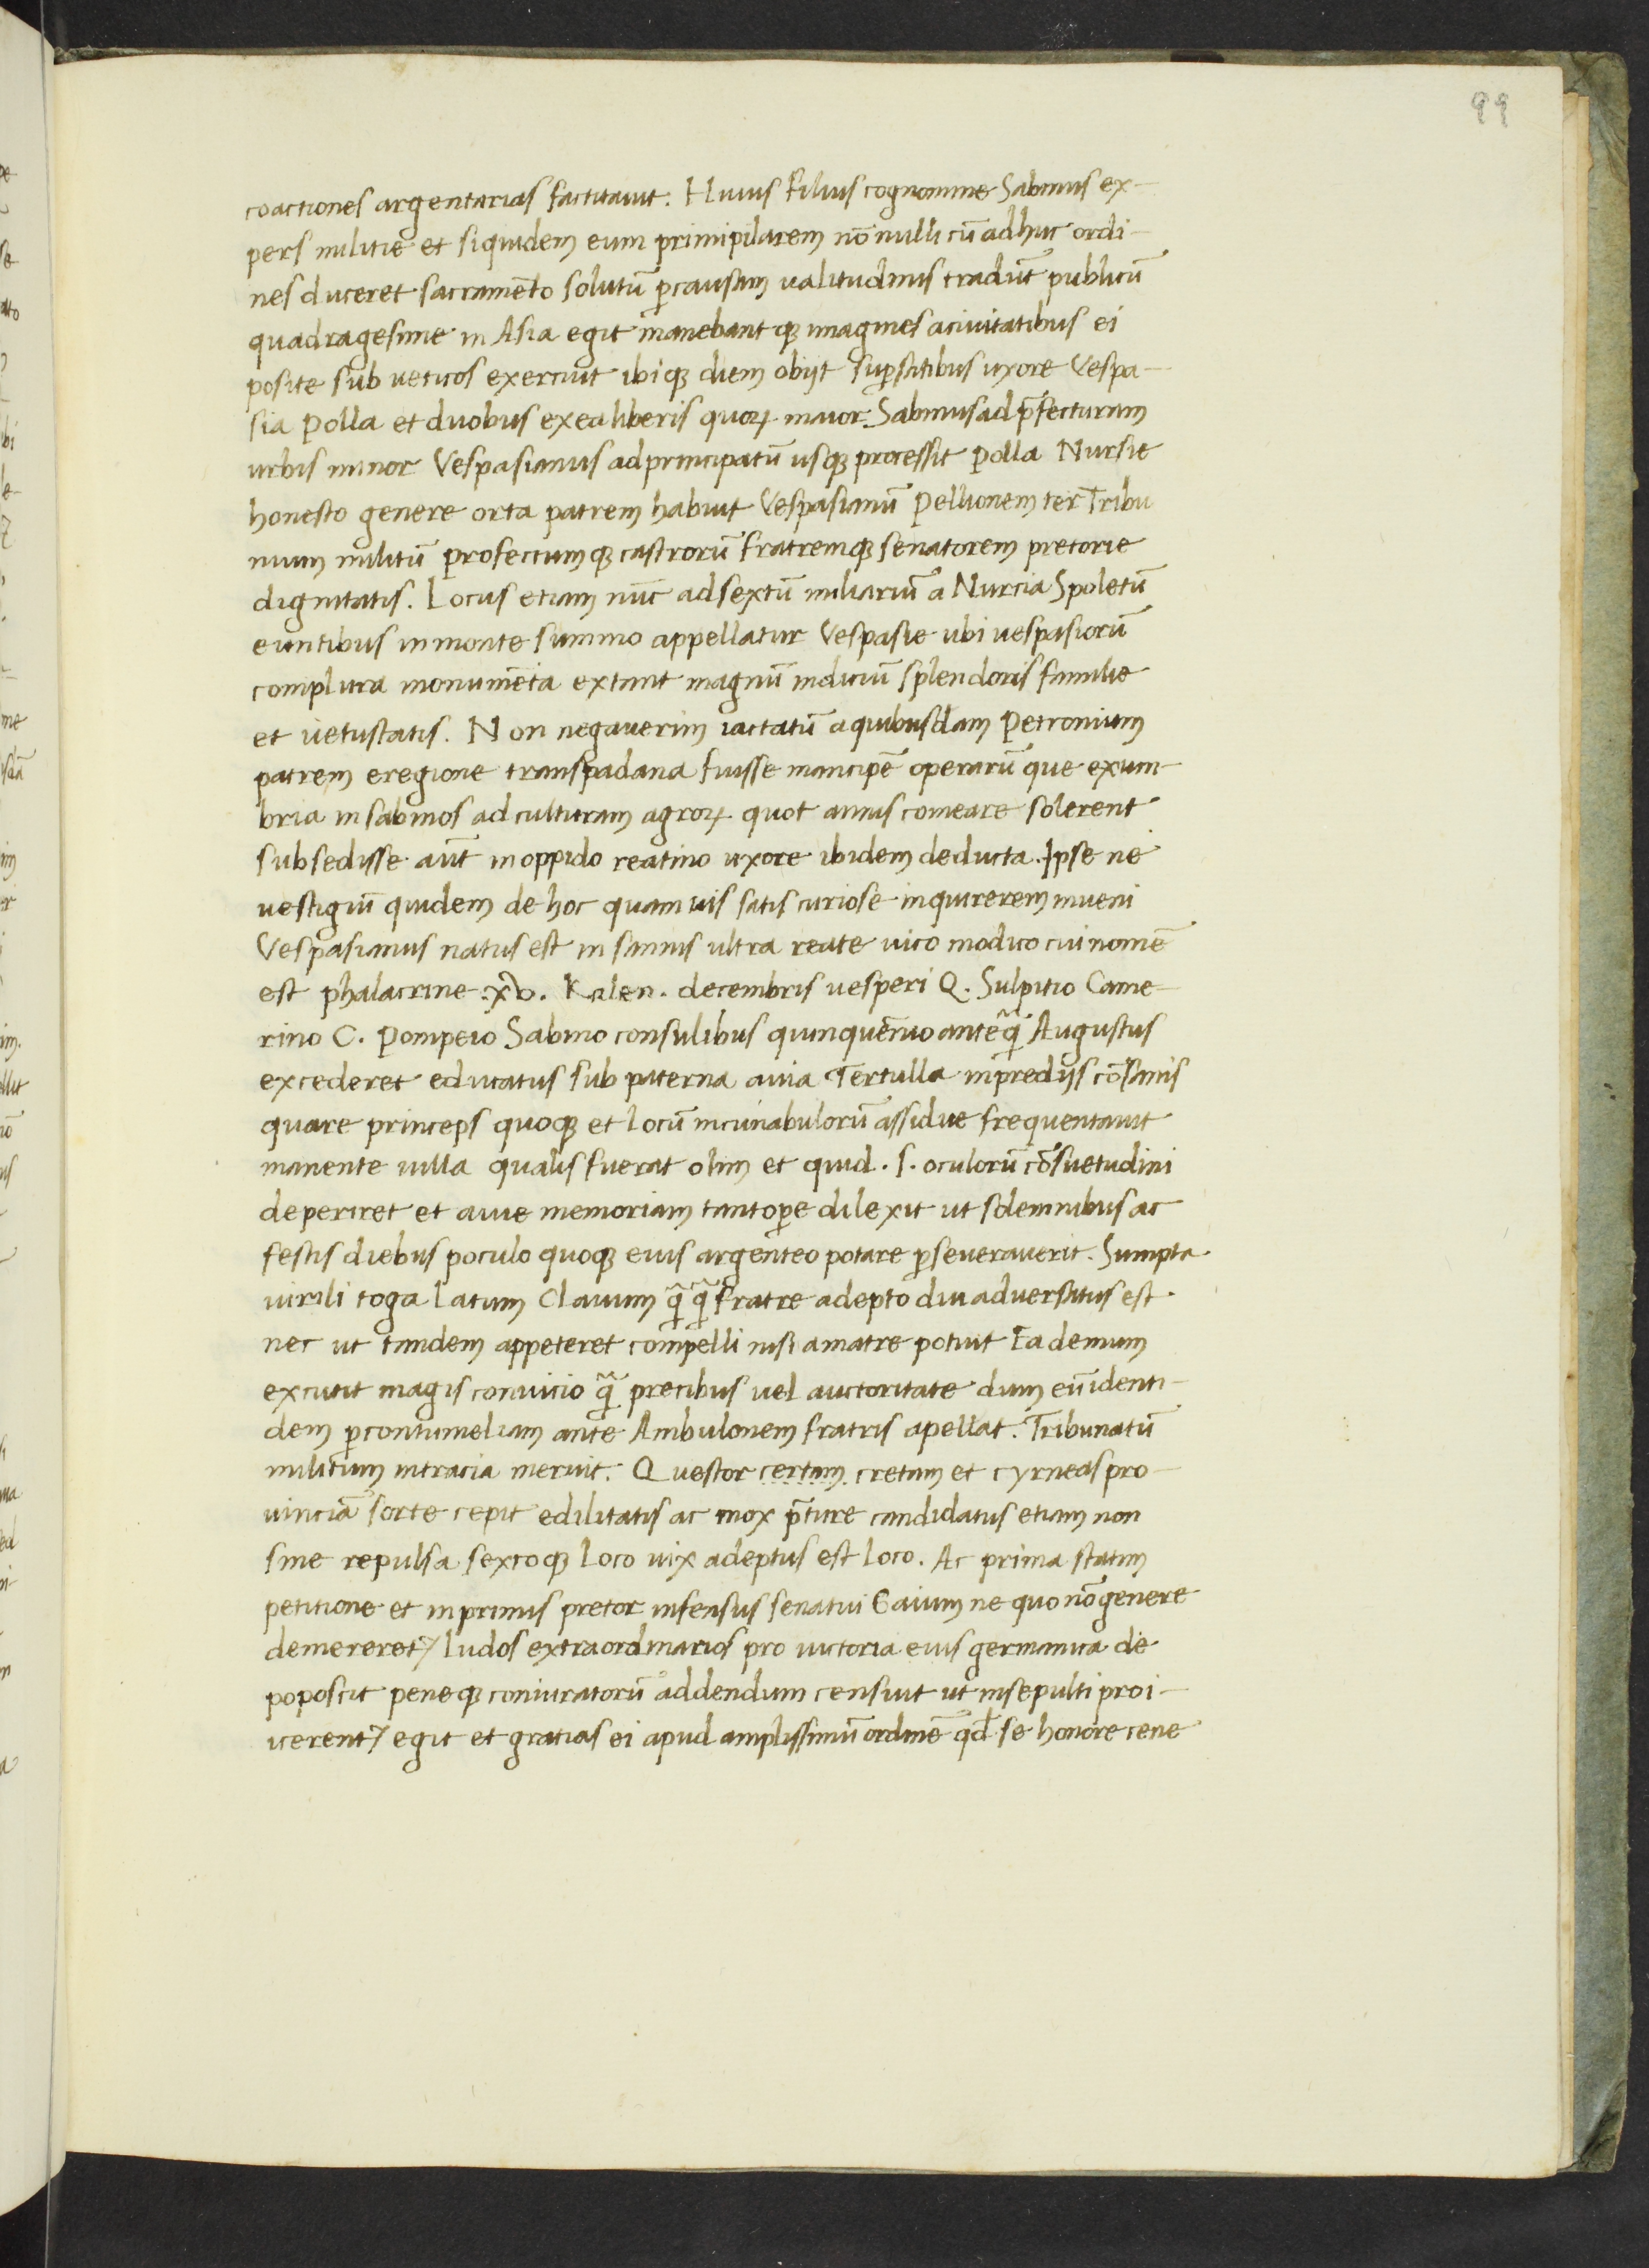 99
coactiones argentarias factitauit. Huius filius cognomine Sabinus ex-
pers militie et siquidem eum primipilarem nō nulli cū adhuc ordi-
nes duceret sacramēto solutū ꝑcausam ualitudinis tradūt publicū
quadragesime in Asia egit manebant qꝫ imagines aciuitatibus ei
posite sub ueticos exercuit ibi qꝫ diem obijt suꝑstitibus uxore Vespa-
sia polla et duobus exea liberis quoꝝ maior Sabinus ad p̄fecturam
urbis minor Vespasianus ad principatū usqꝫ processit polla Nursie
honesto genere orta patrem habuit Vespasianū pellionem ter Tribu
num militū profectumqꝫ castrorū fratremqꝫ senatorem pretorie
dignitatis. Locus etiam nūc ad sextū miliariū a Nurcia Spoletū
euntibus in monte summo appellatur Vespasie ubi uespasiorū
complura monumēta extant magnū indiciū splendoris familie
et uetustatis. Non negauerim iactatū a quibusdam petronium
patrem eregione transpadana fuisse mancipē operarū que exum-
bria in sabinos ad culturam agroꝝ quot annis comeare solerent
subsedisse aūt in oppido reatino uxore ibidem deducta. Ipse ne
uestigiū quidem de hoc quam uis satis curiose inquirerem inueni
Vespasianus natus est in sannis ultra reate uico modico cui nomē
est phalacrine .xv. Kalen. decembris uesperi Q. Sulpitio Came-
rino C. pompeio Sabino consulibus quinquēnio anteq̄ Augustus
excederet educatus sub paterna auia Tertulla in predijs cōsanis
quare princeps quoqꝫ et locū incunabulorū assidue frequentauit
manente uilla qualis fuerat olim et quid .s. oculorū cōsuetudini
deperiret et auie memoriam tantoꝑe dilexit ut solemnibus ac
festis diebus poculo quoqꝫ eius argenteo potare ꝑseuerauerit. Sumpta
uirili toga latum Clauum q̄ q̄ fratre adepto diu aduersatus est.
nec ut tandem appeteret compelli nisi amatre potuit Ea demum
excutit magis conuicio q̄ precibus uel auctoritate dum eū identi-
dem ꝑcontumeliam ante Ambulonem fratris apellat. Tribunatū
militum intracia meruit. Questor certam cretam et cyrneas pro-
uinciā sorte cepit edilitatis ac mox p̄ture candidatus etiam non
sine repulsa sextoqꝫ loco uix adeptus est loco. Ac prima statim
petitione et in primis pretor infensus senatui Gaium ne quo nō genere
demereret⁊ ludos extraordinarios pro uictoria eius germanica de
poposcit peneqꝫ coniuratorū addendum censuit ut insepulti proi-
icerent⁊ egit et gratias ei apud amplissimū ordinē qd̄ se honore cene